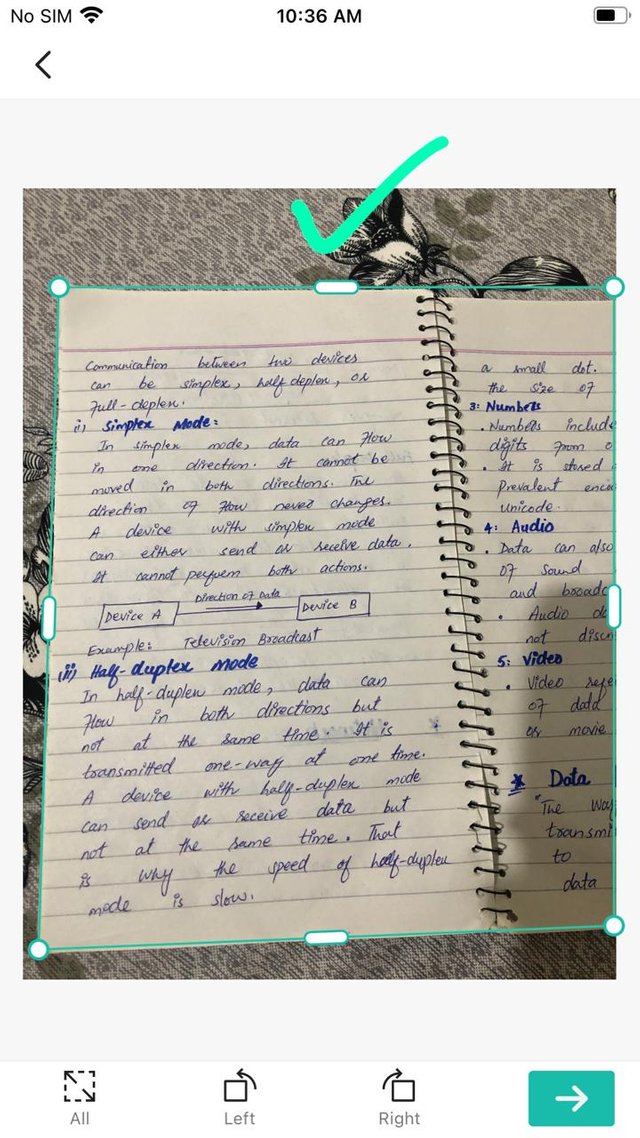 No SIM
10:36 AM
Communication between two devices
can be simplex, half deplex, or
Full-deplex.
i) Simplex Mode:
In simplex mode, data can flow
in one direction. It cannot be
moved in both directions. The
direction of flow never changes.
A device with simplex mode
can either send or receive data.
It cannot perfuem both actions.
Direction of Data
Device A
Device B
Example: Television Broadcast
(ii) Half-duplex Mode
In half-duplex mode, data can
flow in both directions but
not at the same time. It is
transmitted one-way at one time.
A device with half-duplex mode
can send or receive data but
not at the same time. That
is why the speed of half-duplex
mode is slow.
a small dot.
the size of
3: Numbers
. Numbers include
digits from 0
. It is stored
Prevalent enco
Unicode.
4: Audio
. Data can also
of sound
and broadc
. Audio da
not discr
5: Video
. Video refe
of data
or movie
* Data
"The way
transmi
to
data
All
Left
Right